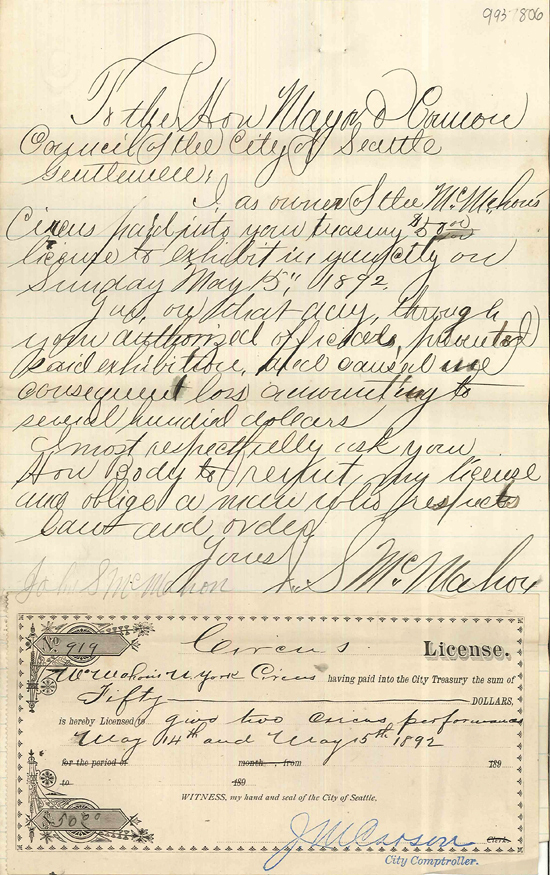 993806
To the Hon Mayor & Common
Council of the City of Seattle
Gentlemen;
I as owner of the McMahon's
Circus paid into your treasury $50 00
license to exhibit in your city on
Sunday May 15", 1892.
You, on that day, through
your authorized officials, prevented
said exhibition, and caused me
consequent loss amounting to
several hundred dollars
I most respectfully ask your
Hon Body to remit my license
and oblige a man who respects
Law and order
Yours
John S McMahon J. S McMahon
No. 919 Circus License.
McMahon's N. York Circus having paid into the City Treasury the sum of
Fifty DOLLARS,
is hereby Licensed to give two circus performances
May 14th and May 15th 1892
for the period of month , from 189
to 189
WITNESS, my hand and seal of the City of Seattle.
$50 00
J M Carson Clerk.
City Comptroller.